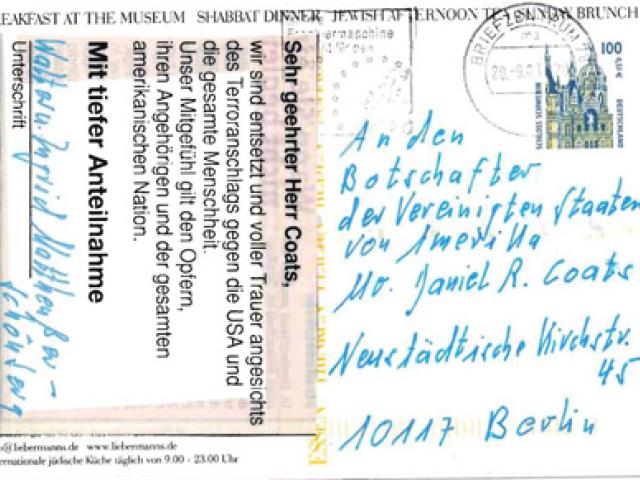 BREAKFAST AT THE MUSEUM SHABBAT DINNER JEWISH AFTERNOON TEA SUNDAY BRUNCH
Sehr geehrter Herr Coats,
wir sind entsetzt und voller Trauer angesichts
des Terroranschlags gegen die USA und
die gesamte Menschheit.
Unser Mitgefühl gilt den Opfern,
ihren Angehörigen und der gesamten
amerikanischen Nation.
Mit tiefer Anteilnahme
Unterschrift
BRIEFZENTRUM
100
0,51 €
DEUTSCHLAND
An den
Botschafter
der Vereinigten Staaten
von Amerika
Mr. Daniel R. Coats
Neustädtische Kirchstr.
45
10117 Berlin
@liebermanns.de www.liebermanns.de
internationale jüdische Küche täglich von 9.00 - 23.00 Uhr